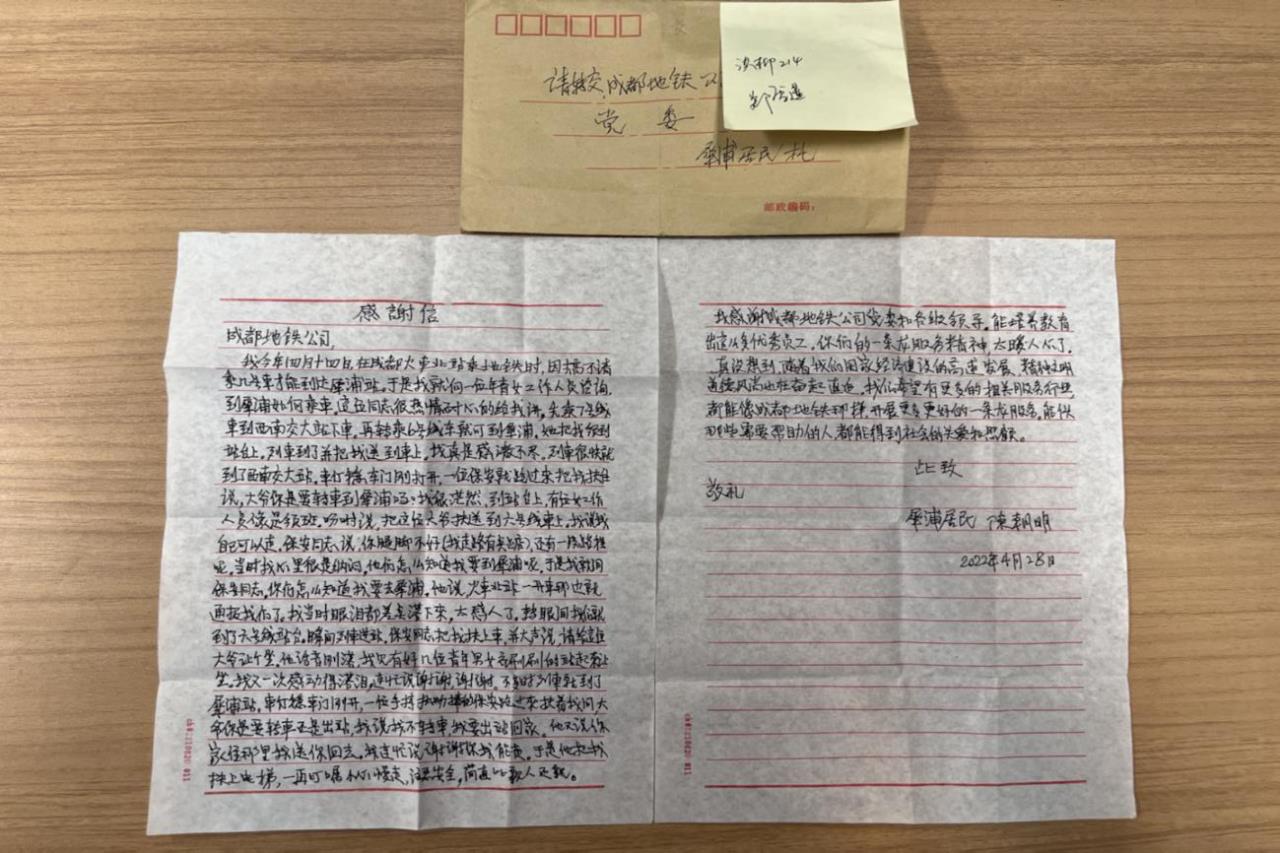 请转交成都地铁公
党 委
犀浦居民 札
邮政编码：
感謝信
成都地铁公司，
我今年四月十四日，在成都火車北站乘地铁时，因搞不清
乘几号車才能到达犀浦站，于是我就向一位年青女工作人员咨询，
到犀浦如何乘車，這位同志很热情耐心的给我讲，先乘7号线
車到西南交大站下車，再转乘6号线车就可到犀浦，她把我领到
站台上，列車到了并把我送到車上，我真是感激不尽。列車很快就
到了西南交大站，車停稳車门刚打开，一位保安就跑过来把我扶住
说，大爷你是要转車到犀浦吗。我很茫然，到站台上，有位女工作
人员像是领班。吩咐说，把這位大爷扶送到六号线車上，我说我
自己可以走，保安同志说，你腿脚不好(我走路有点)，还有一段路程
呢，当时我心里很是纳闷，他们怎么知道我要到犀浦呢，于是我就问
保安同志，你们怎么知道我要去犀浦。他说，火車北站一开車那边就
通报我们了。我当时眼泪都差点滚下来，太感人了。转眼间我们就
到了六号线站台。瞬间列車进站，保安同志把我扶上車，并大声说，请给這位
大爷让个坐。他话音刚落，我只有好几位青年男女齐刷刷的站起来让
坐。我又一次感动得落泪，连忙说谢谢，谢谢。不多时列車就到了
犀浦站，車停稳車门刚开，一位手持的保安跑过来扶着我问大
爷你是要转車还是出站，我说我不转車，我要出站回家。他又说你
家住那里我送你回去。我连忙说谢谢你我能走。于是他把我
扶上电梯，一再叮嘱小心慢走，注意安全，简直比親人还親。
我感謝成都地铁公司党委和各级领导，能培养教育
出這么多优秀员工，你们的一条龙服务精神，太暖人心了。
真没想到随着我们国家经济建设的高速发展，精神文明
道德风尚也在奋起直追。我们希望有更多的相关服务行业，
都能像成都地铁那样，开展更多更好的一条龙服务，
那些需要帮助的人都能得到社会的关爱和照顾。
此致
敬礼
犀浦居民 陳朝明
2022年4月28日